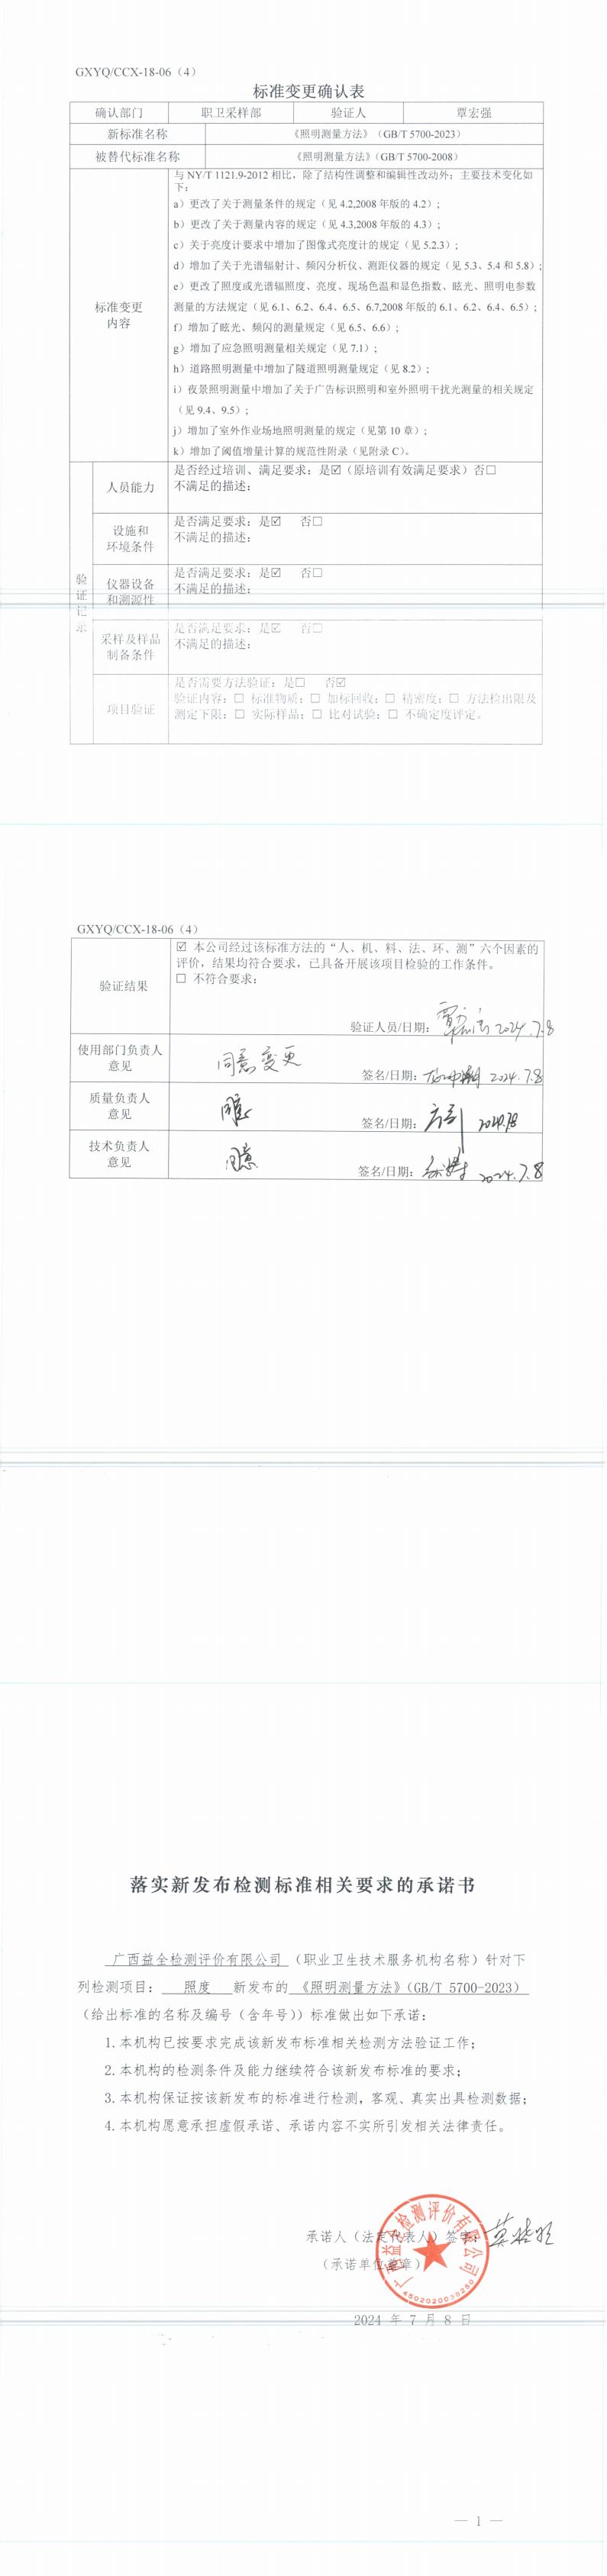 GXYQ/CCX-18-06（4）
标准变更确认表
确认部门 职卫采样部 验证人 覃宏强
新标准名称 《照明测量方法》（GB/T 5700-2023）
被替代标准名称 《照明测量方法》（GB/T 5700-2008）
标准变更
内容
与 NY/T 1121.9-2012 相比，除了结构性调整和编辑性改动外；主要技术变化如
下：
a）更改了关于测量条件的规定（见 4.2,2008 年版的 4.2）；
b）更改了关于测量内容的规定（见 4.3,2008 年版的 4.3）；
c）关于亮度计要求中增加了图像式亮度计的规定（见 5.2.3）；
d）增加了关于光谱辐射计、频闪分析仪、测距仪器的规定（见 5.3、5.4 和 5.8）；
e）更改了照度或光谱辐照度、亮度、现场色温和显色指数、眩光、照明电参数
测量的方法规定（见 6.1、6.2、6.4、6.5、6.7,2008 年版的 6.1、6.2、6.4、6.5）；
f）增加了眩光、频闪的测量规定（见 6.5、6.6）；
g）增加了应急照明测量相关规定（见 7.1）；
h）道路照明测量中增加了隧道照明测量规定（见 8.2）；
i）夜景照明测量中增加了关于广告标识照明和室外照明干扰光测量的相关规定
（见 9.4、9.5）；
j）增加了室外作业场地照明测量的规定（见第 10 章）；
k）增加了阈值增量计算的规范性附录（见附录 C）。
验证记录
人员能力
是否经过培训、满足要求：是☑（原培训有效满足要求）否☐
不满足的描述：
设施和
环境条件
是否满足要求：是☑ 否☐
不满足的描述：
仪器设备
和溯源性
是否满足要求：是☑ 否☐
不满足的描述：
采样及样品
制备条件
是否满足要求：是☑ 否☐
不满足的描述：
项目验证
是否需要方法验证：是☐ 否☑
验证内容：☐ 标准物质；☐ 加标回收；☐ 精密度；☐ 方法检出限及
测定下限；☐ 实际样品；☐ 比对试验；☐ 不确定度评定。
GXYQ/CCX-18-06（4）
验证结果
☑ 本公司经过该标准方法的“人、机、料、法、环、测”六个因素的
评价，结果均符合要求，已具备开展该项目检验的工作条件。
☐ 不符合要求：
验证人员/日期： 2024.7.8
使用部门负责人
意见
同意变更
签名/日期： 2024.7.8
质量负责人
意见
同意
签名/日期： 2024.7.8
技术负责人
意见
同意
签名/日期： 2024.7.8
落实新发布检测标准相关要求的承诺书
广西益全检测评价有限公司（职业卫生技术服务机构名称）针对下
列检测项目： 照度 新发布的《照明测量方法》（GB/T 5700-2023）
（给出标准的名称及编号（含年号））标准做出如下承诺：
1.本机构已按要求完成该新发布标准相关检测方法验证工作；
2.本机构的检测条件及能力继续符合该新发布标准的要求；
3.本机构保证按该新发布的标准进行检测，客观、真实出具检测数据；
4.本机构愿意承担虚假承诺、承诺内容不实所引发相关法律责任。
承诺人（法定代表人）签字：
（承诺单位盖章）
广西益全检测评价有限公司
2024 年 7 月 8 日
— 1 —